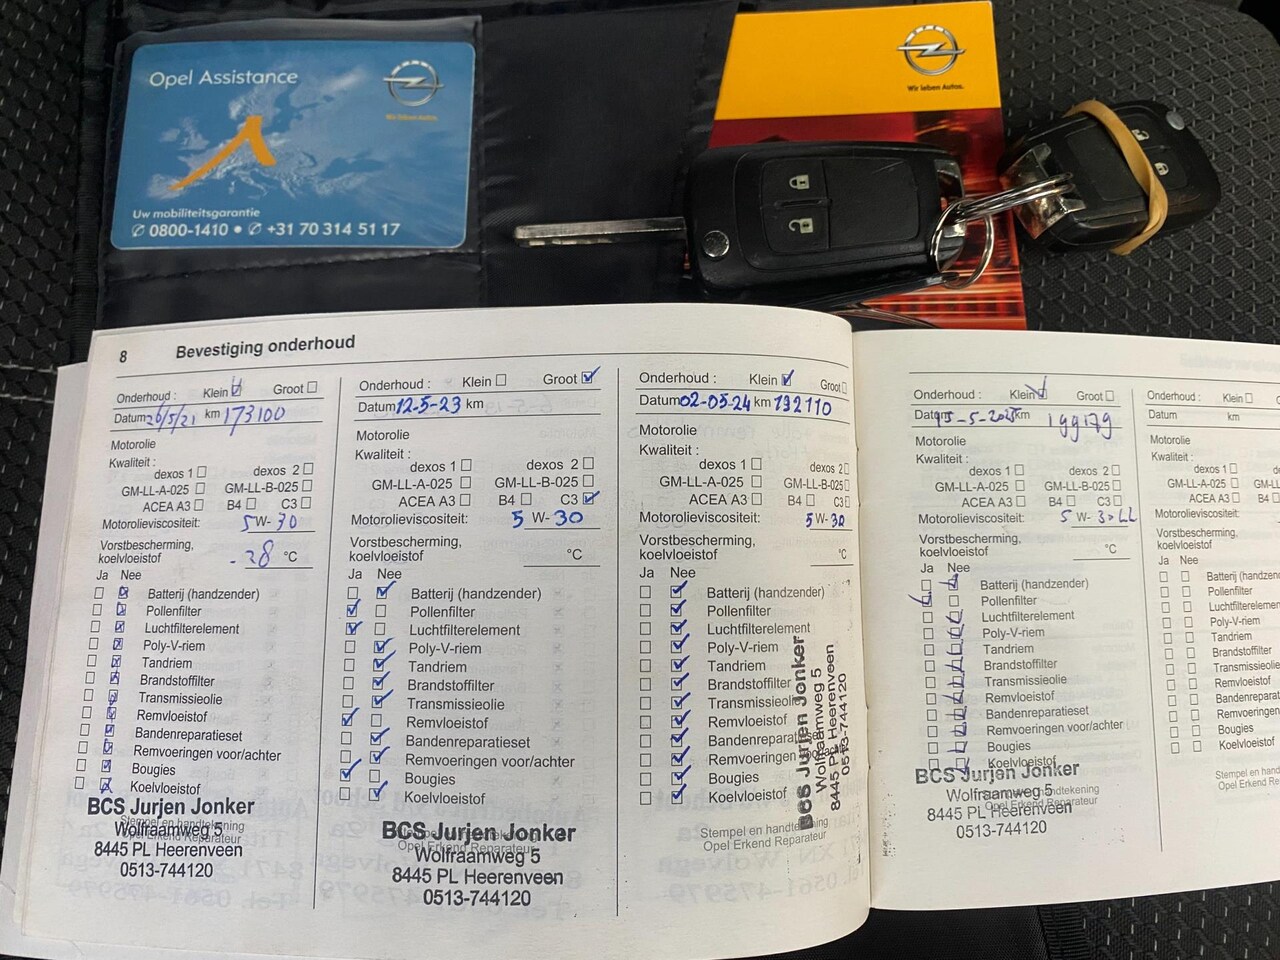 Opel Assistance
Wir leben Autos.
Uw mobiliteitsgarantie
✆ 0800-1410 • ✆ +31 70 314 51 17
Wir leben Autos.
8 Bevestiging onderhoud
Onderhoud : Klein Groot
Datum 26/5/21 km 173100
Motorolie
Kwaliteit :
dexos 1 dexos 2
GM-LL-A-025 GM-LL-B-025
ACEA A3 B4 C3
Motorolieviscositeit: 5 W- 30
Vorstbescherming,
koelvloeistof - 28 °C
Ja Nee
Batterij (handzender)
Pollenfilter
Luchtfilterelement
Poly-V-riem
Tandriem
Brandstoffilter
Transmissieolie
Remvloeistof
Bandenreparatieset
Remvoeringen voor/achter
Bougies
Koelvloeistof
BCS Jurjen Jonker
Stempel en handtekening
Wolfraamweg 5
Opel Erkend Reparateur
8445 PL Heerenveen
0513-744120
Onderhoud : Klein Groot
Datum 12-5-23 km
Motorolie
Kwaliteit :
dexos 1 dexos 2
GM-LL-A-025 GM-LL-B-025
ACEA A3 B4 C3
Motorolieviscositeit: 5 W- 30
Vorstbescherming,
koelvloeistof °C
Ja Nee
Batterij (handzender)
Pollenfilter
Luchtfilterelement
Poly-V-riem
Tandriem
Brandstoffilter
Transmissieolie
Remvloeistof
Bandenreparatieset
Remvoeringen voor/achter
Bougies
Koelvloeistof
BCS Jurjen Jonker
Opel Erkend Reparateur
Wolfraamweg 5
8445 PL Heerenveen
0513-744120
Onderhoud : Klein Groot
Datum 02-05-24 km 192110
Motorolie
Kwaliteit :
dexos 1 dexos 2
GM-LL-A-025 GM-LL-B-025
ACEA A3 B4 C3
Motorolieviscositeit: 5 W- 30
Vorstbescherming,
koelvloeistof °C
Ja Nee
Batterij (handzender)
Pollenfilter
Luchtfilterelement
Poly-V-riem
Tandriem
Brandstoffilter
Transmissieolie
Remvloeistof
Bandenreparatieset
Remvoeringen
Bougies
Koelvloeistof
BCS Jurjen Jonker
Wolfraamweg 5
8445 PL Heerenveen
0513-744120
Stempel en handtekening
Opel Erkend Reparateur
Onderhoud : Klein Groot
Datum 15-5-2025 km 199179
Motorolie
Kwaliteit :
dexos 1 dexos 2
GM-LL-A-025 GM-LL-B-025
ACEA A3 B4 C3
Motorolieviscositeit: 5 W- 30 LL
Vorstbescherming,
koelvloeistof °C
Ja Nee
Batterij (handzender)
Pollenfilter
Luchtfilterelement
Poly-V-riem
Tandriem
Brandstoffilter
Transmissieolie
Remvloeistof
Bandenreparatieset
Remvoeringen voor/achter
Bougies
Koelvloeistof
BCS Jurjen Jonker
Wolfraamweg 5
Opel Erkend Reparateur
8445 PL Heerenveen
0513-744120
Onderhoud : Klein
Datum km
Motorolie
Kwaliteit :
dexos 1
GM-LL-A-025
ACEA A3
Motorolieviscositeit:
Vorstbescherming,
koelvloeistof
Ja Nee
Batterij (handzende
Pollenfilter
Luchtfilterelement
Poly-V-riem
Tandriem
Brandstoffilter
Transmissieolie
Remvloeistof
Bandenrepara
Remvoeringen
Bougies
Koelvloeistof
Stempel en handtek
Opel Erkend Repar